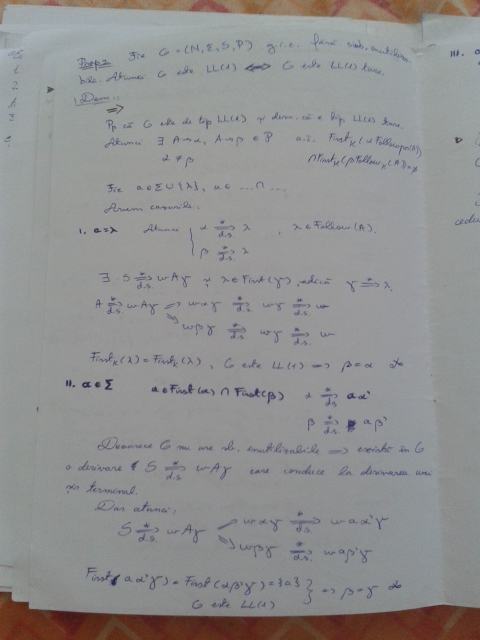 Prop 2 Fie G = (N, Σ, S, P) g.i.c. fără simb. inutiliza-
bile. Atunci G este LL(1) ⟺ G este LL(1) tare.
Dem.:
⟹
Pp. că G este de tip LL(1) și dem. că e tip LL(1) tare.
Atunci ∃ A→α, A→β ∈ P a.î. First_K(α Follow_K(A))
α ≠ β ∩ First_K(β Follow_K(A)) = ∅
Fie a ∈ Σ∪{λ}, a ∈ ... ∩ ....
Avem cazurile:
I. a=λ Atunci { α *⟹d.s. λ , λ ∈ Follow(A).
β *⟹d.s. λ
∃ S *⟹d.s. wAγ și λ ∈ First(γ), adică γ *⟹ λ
A *⟹d.s. wAγ ⟹ wαγ *⟹d.s. wγ *⟹d.s. w
⟹ wβγ *⟹d.s. wγ *⟹d.s. w
First_K(λ) = First_K(λ), G este LL(1) ⟹ β=α
II. a ∈ Σ a ∈ First(α) ∩ First(β) α *⟹d.s. aα'
β *⟹d.s. aβ'
Deoarece G nu are sb. inutilizabile ⟹ există în G
o derivare S *⟹d.s. wAγ care conduce la derivarea unui
șir terminal.
Dar atunci,
S *⟹d.s. wAγ ⟹ wαγ *⟹d.s. waα'γ
⟹ wβγ *⟹d.s. waβ'γ
First(aα'γ) = First(aβ'γ) = {a} } ⟹ β=γ
G este LL(1)
III.